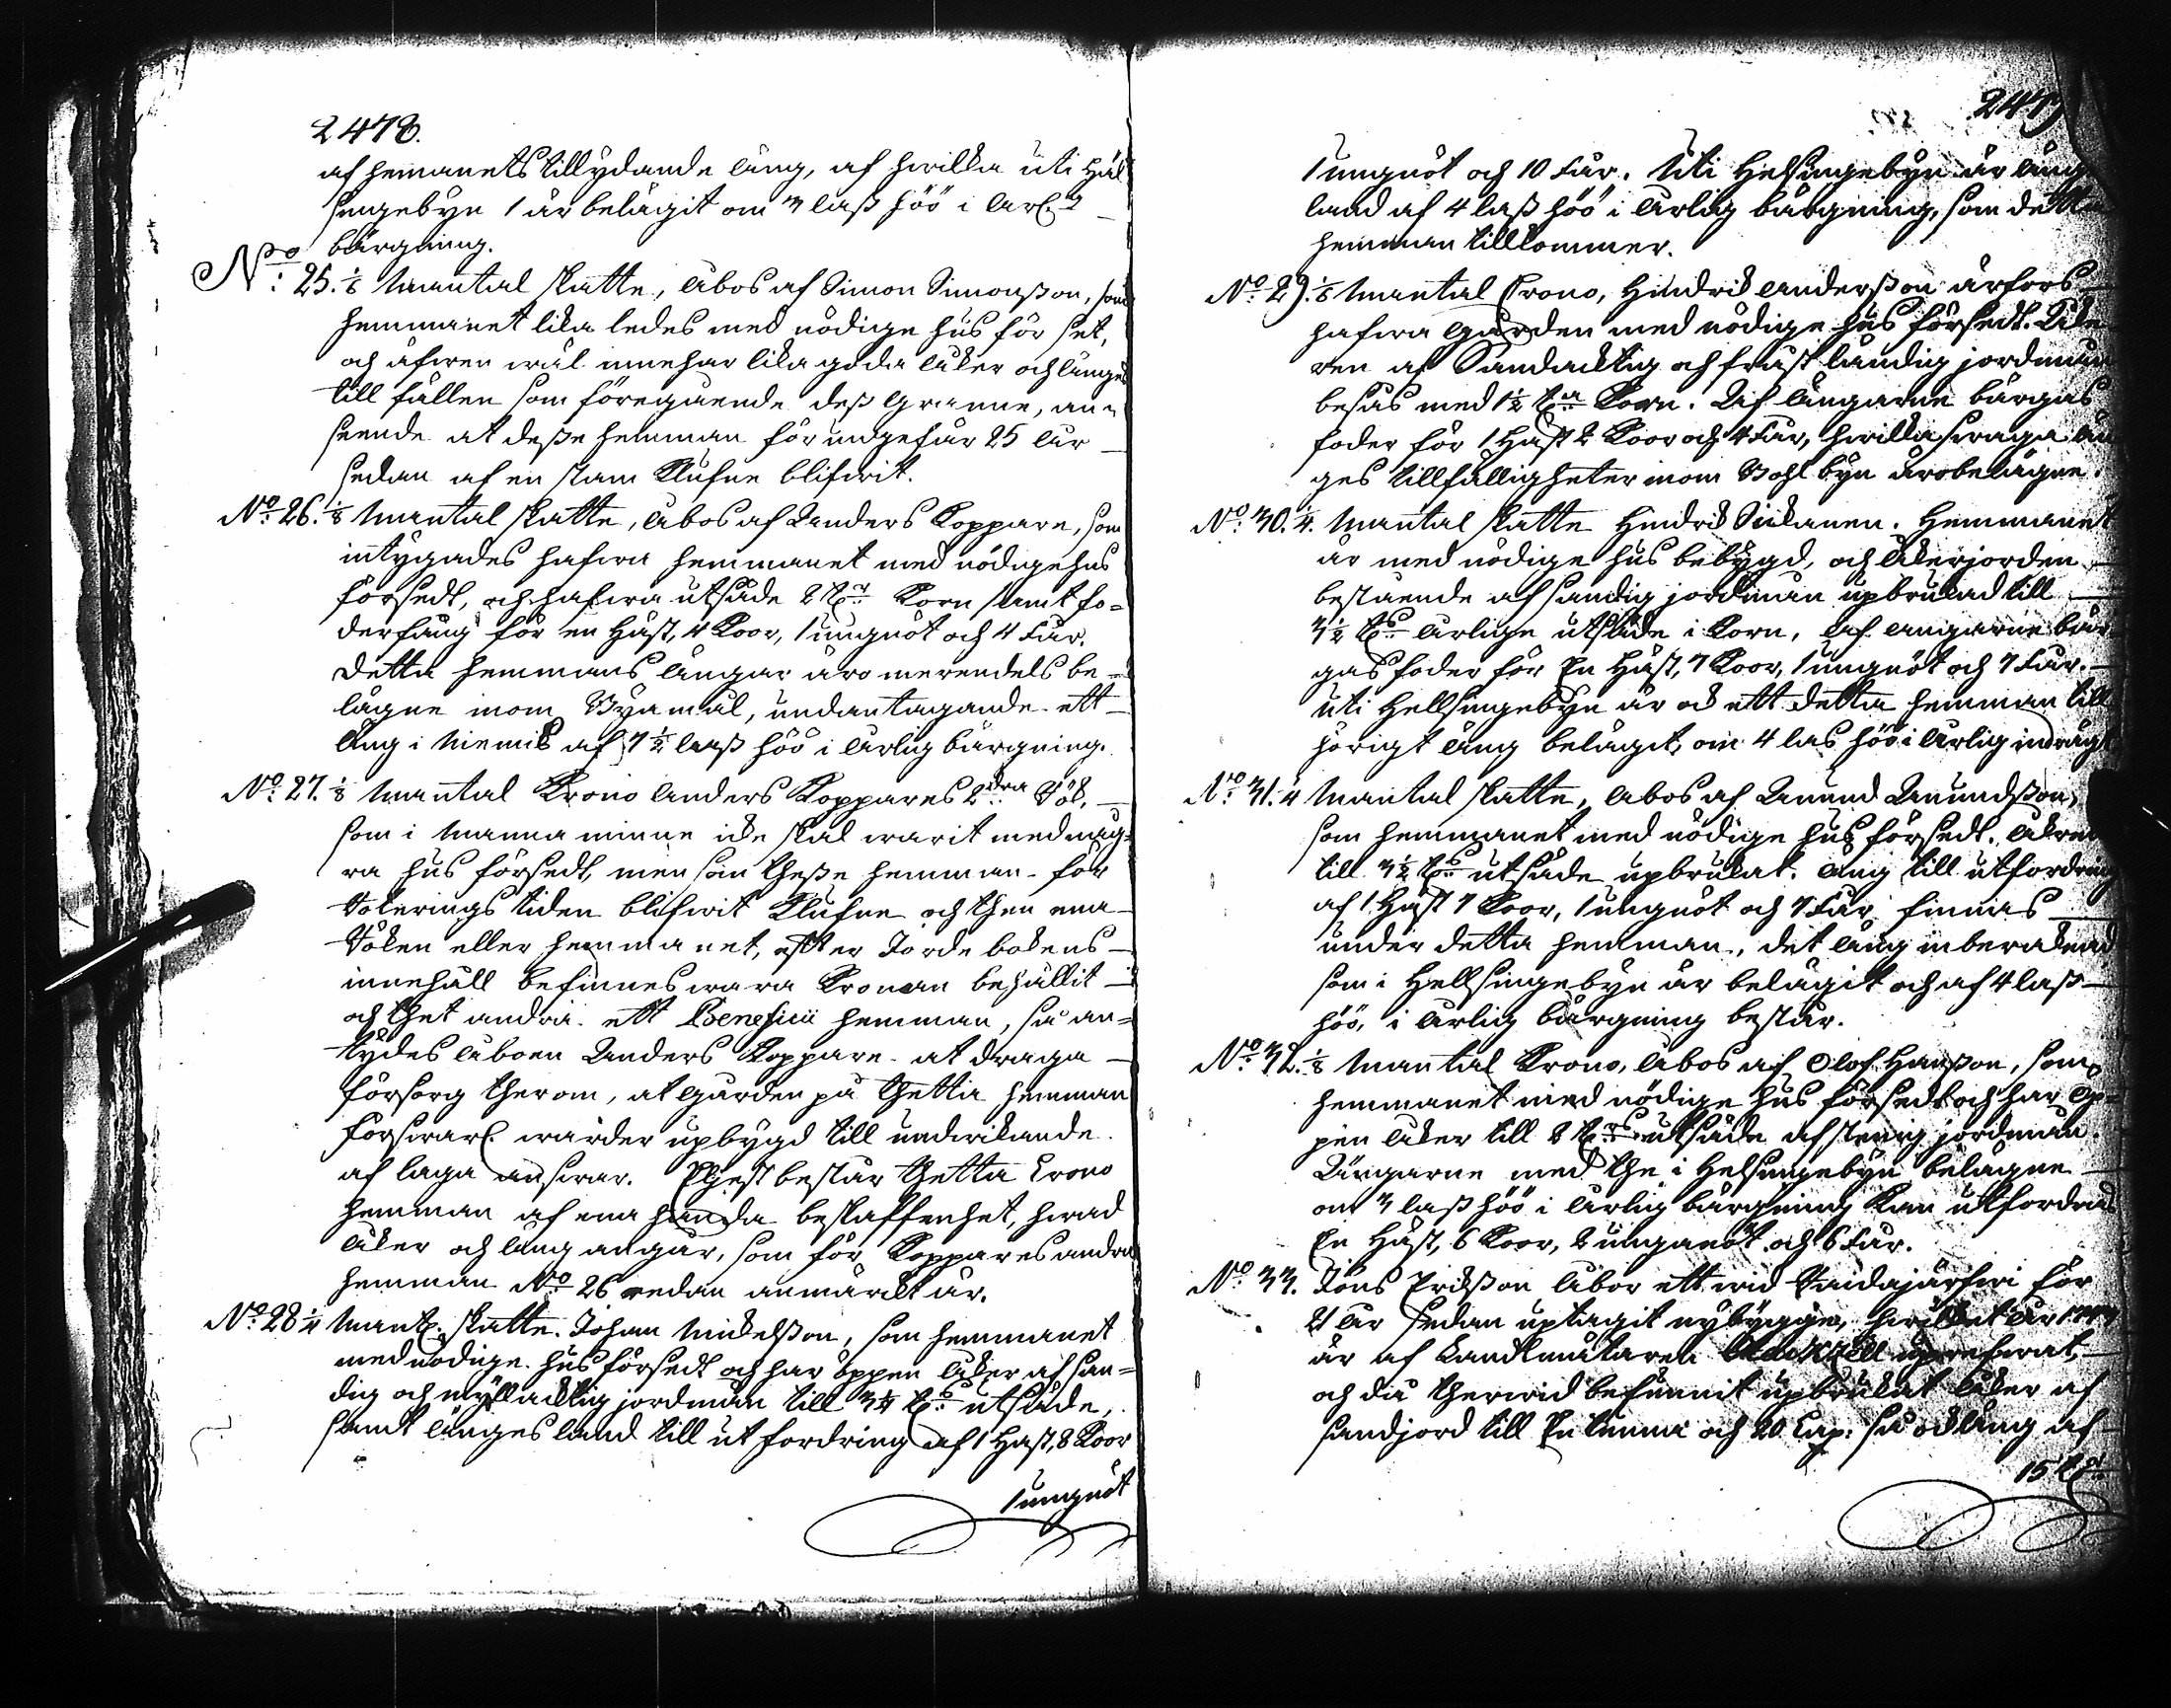 2478.
af hemanets tillydande äng, af hwilka uti Häl
singebyn 1 är belägit om 3 lass höö i årl.
bärgning.
No: 25. 1/8 Mantal skatte, åbos af Simon Simonsson, som
hemmanet lika ledes med nödige hus för set,
och äfwen wäl innehar lika goda åker och änges
till fällen som föregående dess Granne, an
seende at desse hemman för ungefär 25 åhr
sedan af en stam klufne blifwit.
No: 26. 1/8 Mantal skatte, åbos af Anders Koppare, som
intygades hafwa hemmanet med nödige hus
försedt, och hafwa utsäde 2 T:r Korn samt fo=
derfång för en Häst, 4 Koor, 1 ungnöt och 4 Får.
detta hemmans ängar äro merendels be=
lägne inom Byamål, undantagande ett
äng i Niemis af 3 1/2 lass höö i årlig bärgning.
No: 27. 1/8 Mantal Krono Anders Koppares 2:dra Rök,
som i manna minne icke skal warit med någ=
ra hus försedt, men som thesse hemman för
Roterings tiden blifwit Klufne och then ena
Röken eller hemmanet, efter Jordebokens
innehåll befinnes wara Kronan behållit
och thet andra ett Beneficii hemman, så an=
tydes åboen Anders Koppare at draga
försorg therom, at gården på thetta hemman
förswarl. warder upbygd till undwikande
af laga answar. Elljest består thetta Crono
hemman af ena handa beskaffenhet, hwad
åker och äng angår, som för Koppares andra
hemman No 26 redan anmärkt är.
No: 28 1/4 Mant. skatte. Johan Mickelsson, som hemmanet
med nödige hus försedt och har öppen åker af san=
dig och myllachtig jordmån till 3 1/4 T:rs utsäde,
samt änges land till utfordring af 1 Häst, 8 Koor
1 ungnöt
2479
1 ungnöt och 10 Får. Uti Helsingebyn är äng
land af 4 lass höö i årlig bärgning, som detta
hemman tillkommer.
No: 29. 1/8 Mantal Crono, Hindrik Andersson ärfors
hafwa gården med nödige hus försedt. Åke
ren af Sandachtig och frost ländig jordmån
besås med 1 1/2 T:a Korn. Af ängarne bärgas
foder för 1 Häst 2 Koor och 4 Får, hwilka swaga än
ges tillfälligheter inom Wohl byn äro belägne.
No: 30. 1/4. Mantal skatte Hindrik Siikanen. Hemmanet
är med nödige hus bebygd, och åkerjorden
bestående af sandig jordmån upbrukad till
3 1/2 T:rs årlige utsäde i Korn, af ängarne bär
gas foder för En Häst, 7 Koor, 1 ungnöt och 7 Får.
uti Hellsingebyn är ock ett detta hemman till
hörigt äng belägit, om 4 las höö i årlig indrägt
No: 31. 1/4 Mantal skatte, åbos af Anund Anundsson,
som hemmanet med nödige hus försedt. åkren
till 3 1/2 T:rs utsäde upbrukat. äng till utfordring
af 1 Häst 7 Koor, 1 ungnöt och 7 Får finnas
under detta hemman, det äng inberäknad
som i Hellsingebyn är belägit och af 4 lass
höö, i årlig bärgning består.
No: 32. 1/8 Mantal Krono, åbos af Olof Hansson, som
hemmanet med nödige hus försedt och har öp
pen åker till 2 T:rs utsäde af stenig jordmån.
Ängarne med the i Helsingebyn belägne
om 3 lass höö i årlig bärgning kan utfordras
En Häst, 6 Koor, 2 ungnöt och 6 Får.
No: 33. Jöns Ericsson åbor ett wid för
21 år sedan uptagit nybygge, hwilket år
är af Landtmätaren uprefwat,
och då therwid befunnit upbrukat åker af
sandjord till En tunna och 20 Cap: så ock äng af
15